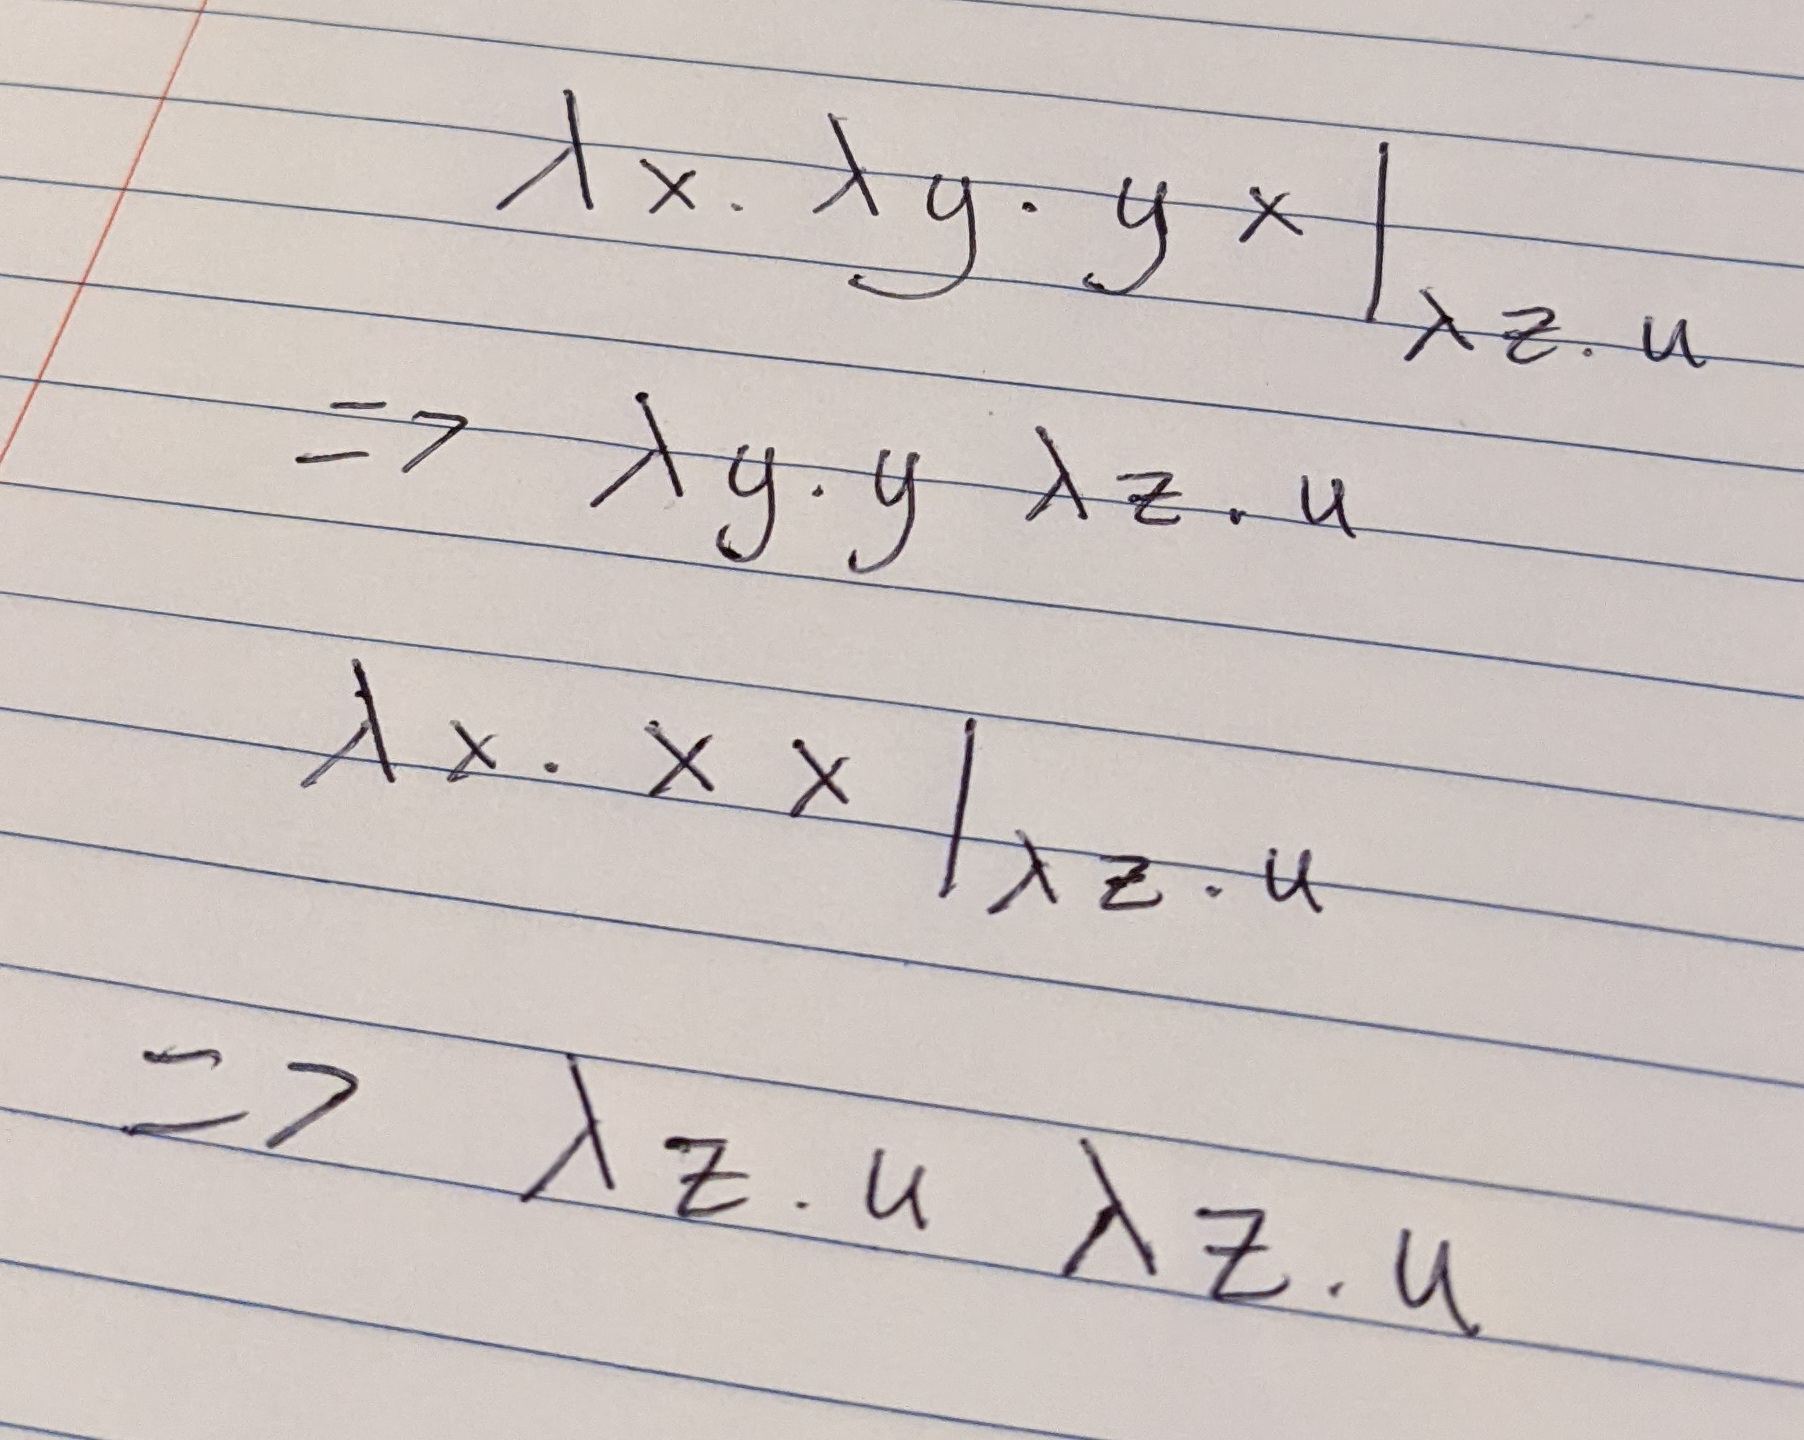 λx. λy. y x |λz. u
=> λy. y λz. u
λx. x x |λz. u
=> λz. u λz. u